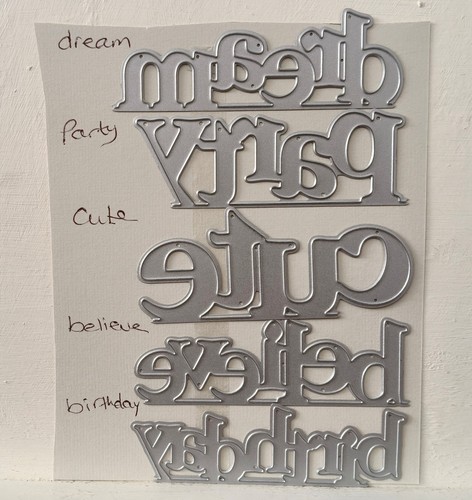 dream
dream
Party
party
cute
cute
believe
believe
birthday
birthday